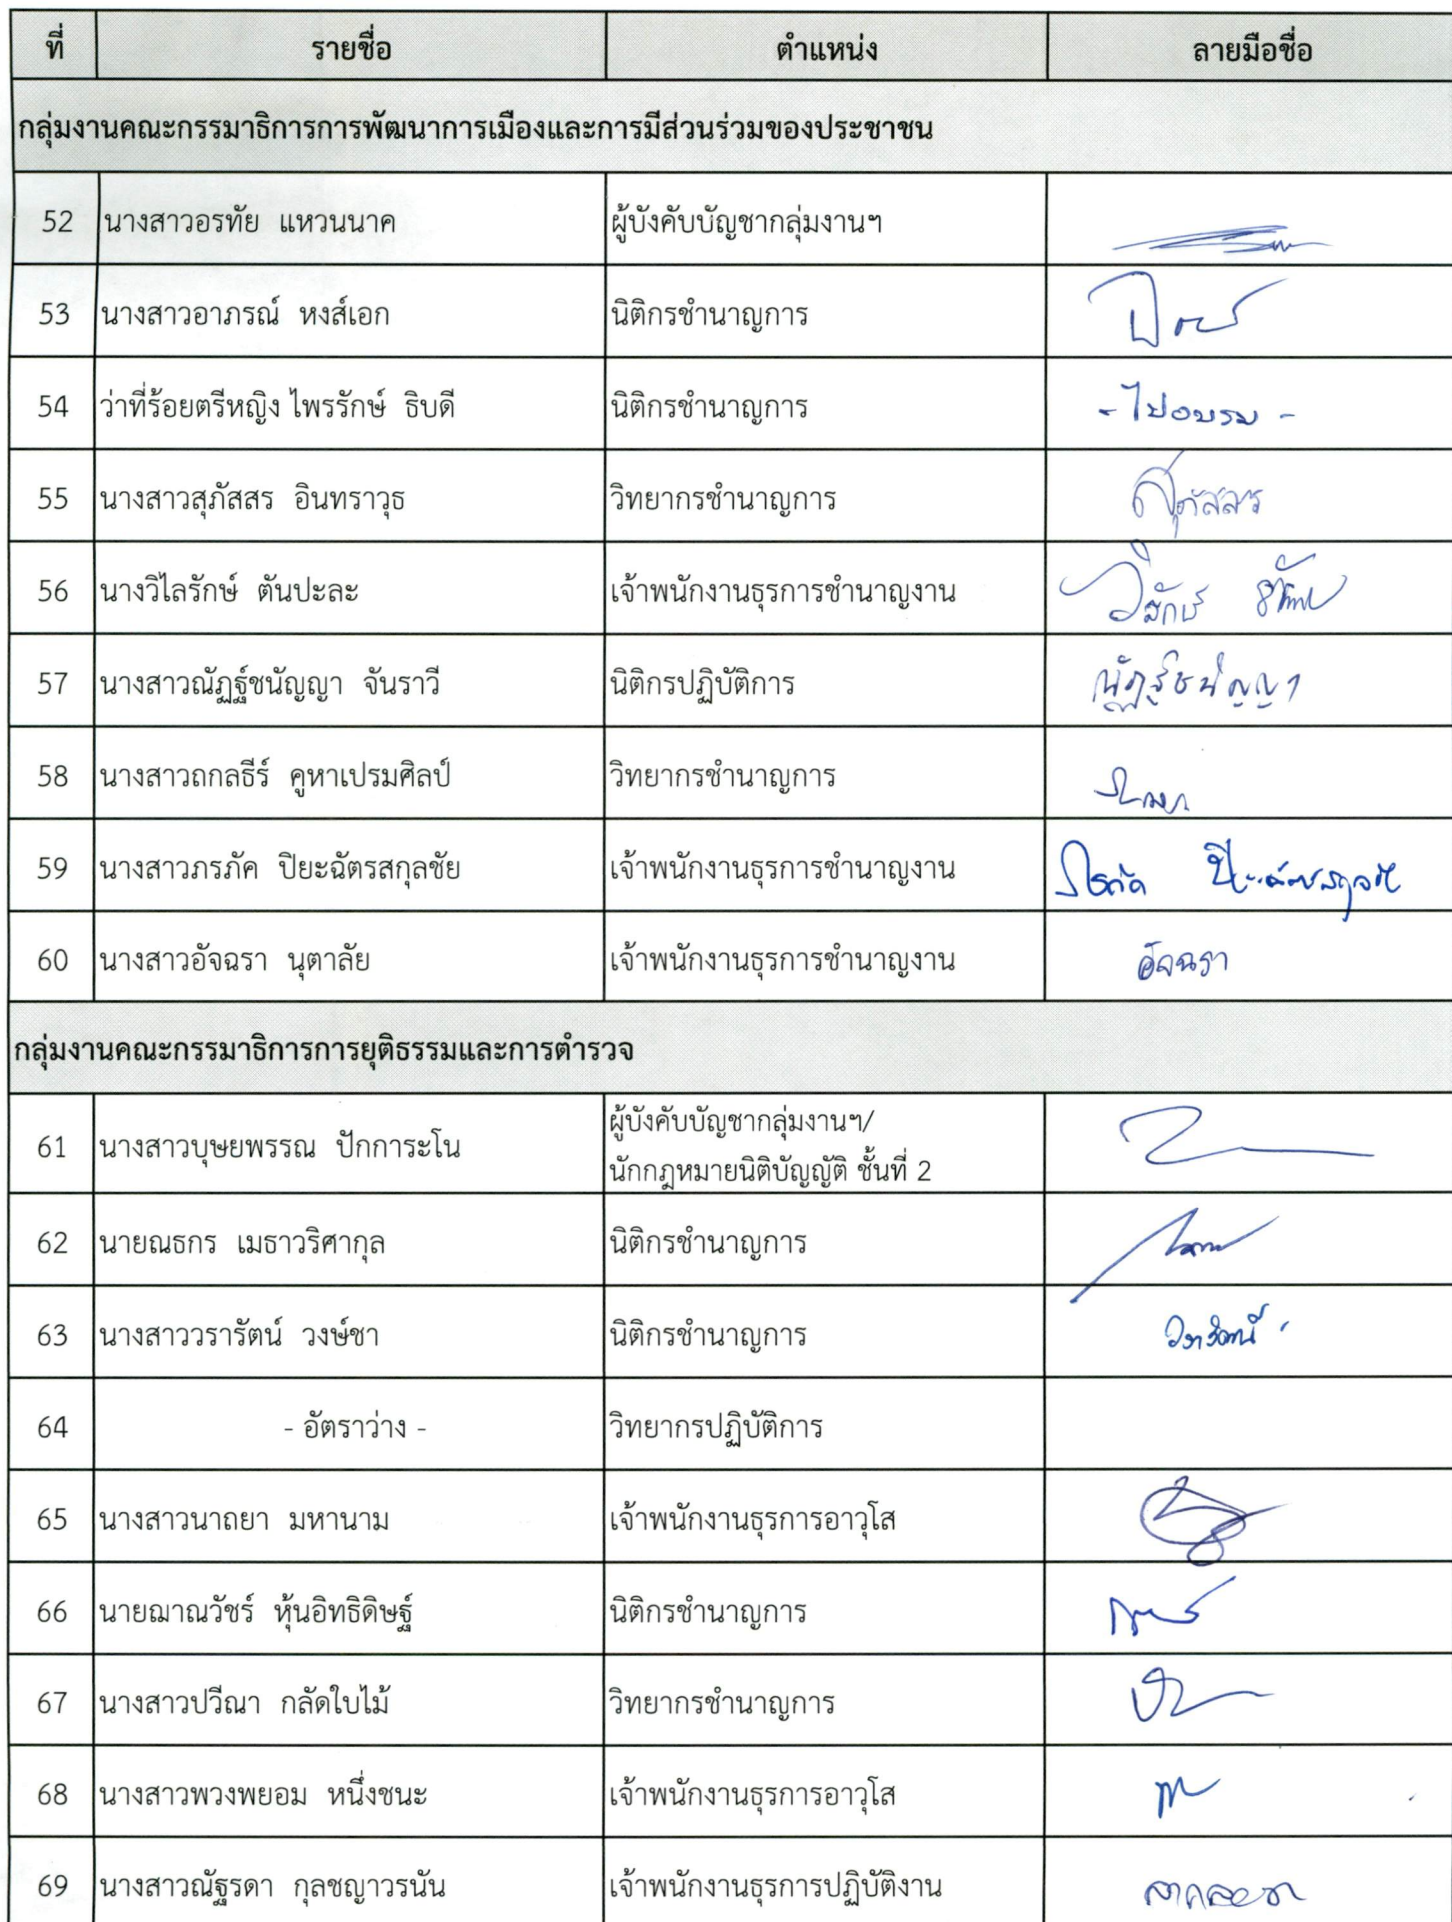 ที่ รายชื่อ ตำแหน่ง ลายมือชื่อ
กลุ่มงานคณะกรรมาธิการการพัฒนาการเมืองและการมีส่วนร่วมของประชาชน
52 นางสาวอรทัย แหวนนาค ผู้บังคับบัญชากลุ่มงานฯ
53 นางสาวอาภรณ์ หงส์เอก นิติกรชำนาญการ
54 ว่าที่ร้อยตรีหญิง ไพรรักษ์ ธิบดี นิติกรชำนาญการ - ไปอบรม -
55 นางสาวสุภัสสร อินทราวุธ วิทยากรชำนาญการ สุภัสสร
56 นางวิไลรักษ์ ตันปะละ เจ้าพนักงานธุรการชำนาญงาน
57 นางสาวณัฏฐ์ชนัญญา จันราวี นิติกรปฏิบัติการ ณัฏฐ์ชนัญญา
58 นางสาวถกลธีร์ คูหาเปรมศิลป์ วิทยากรชำนาญการ
59 นางสาวภรภัค ปิยะฉัตรสกุลชัย เจ้าพนักงานธุรการชำนาญงาน ภรภัค ปิยะฉัตรสกุลชัย
60 นางสาวอัจฉรา นุตาลัย เจ้าพนักงานธุรการชำนาญงาน อัจฉรา
กลุ่มงานคณะกรรมาธิการการยุติธรรมและการตำรวจ
61 นางสาวบุษยพรรณ ปักการะโน ผู้บังคับบัญชากลุ่มงานฯ/
นักกฎหมายนิติบัญญัติ ชั้นที่ 2
62 นายณธกร เมธาวริศากุล นิติกรชำนาญการ
63 นางสาววรารัตน์ วงษ์ชา นิติกรชำนาญการ วรารัตน์
64 - อัตราว่าง - วิทยากรปฏิบัติการ
65 นางสาวนาถยา มหานาม เจ้าพนักงานธุรการอาวุโส
66 นายฌาณวัชร์ หุ้นอิทธิดิษฐ์ นิติกรชำนาญการ
67 นางสาวปวีณา กลัดใบไม้ วิทยากรชำนาญการ
68 นางสาวพวงพยอม หนึ่งชนะ เจ้าพนักงานธุรการอาวุโส
69 นางสาวณัฐรดา กุลชญาวรนัน เจ้าพนักงานธุรการปฏิบัติงาน